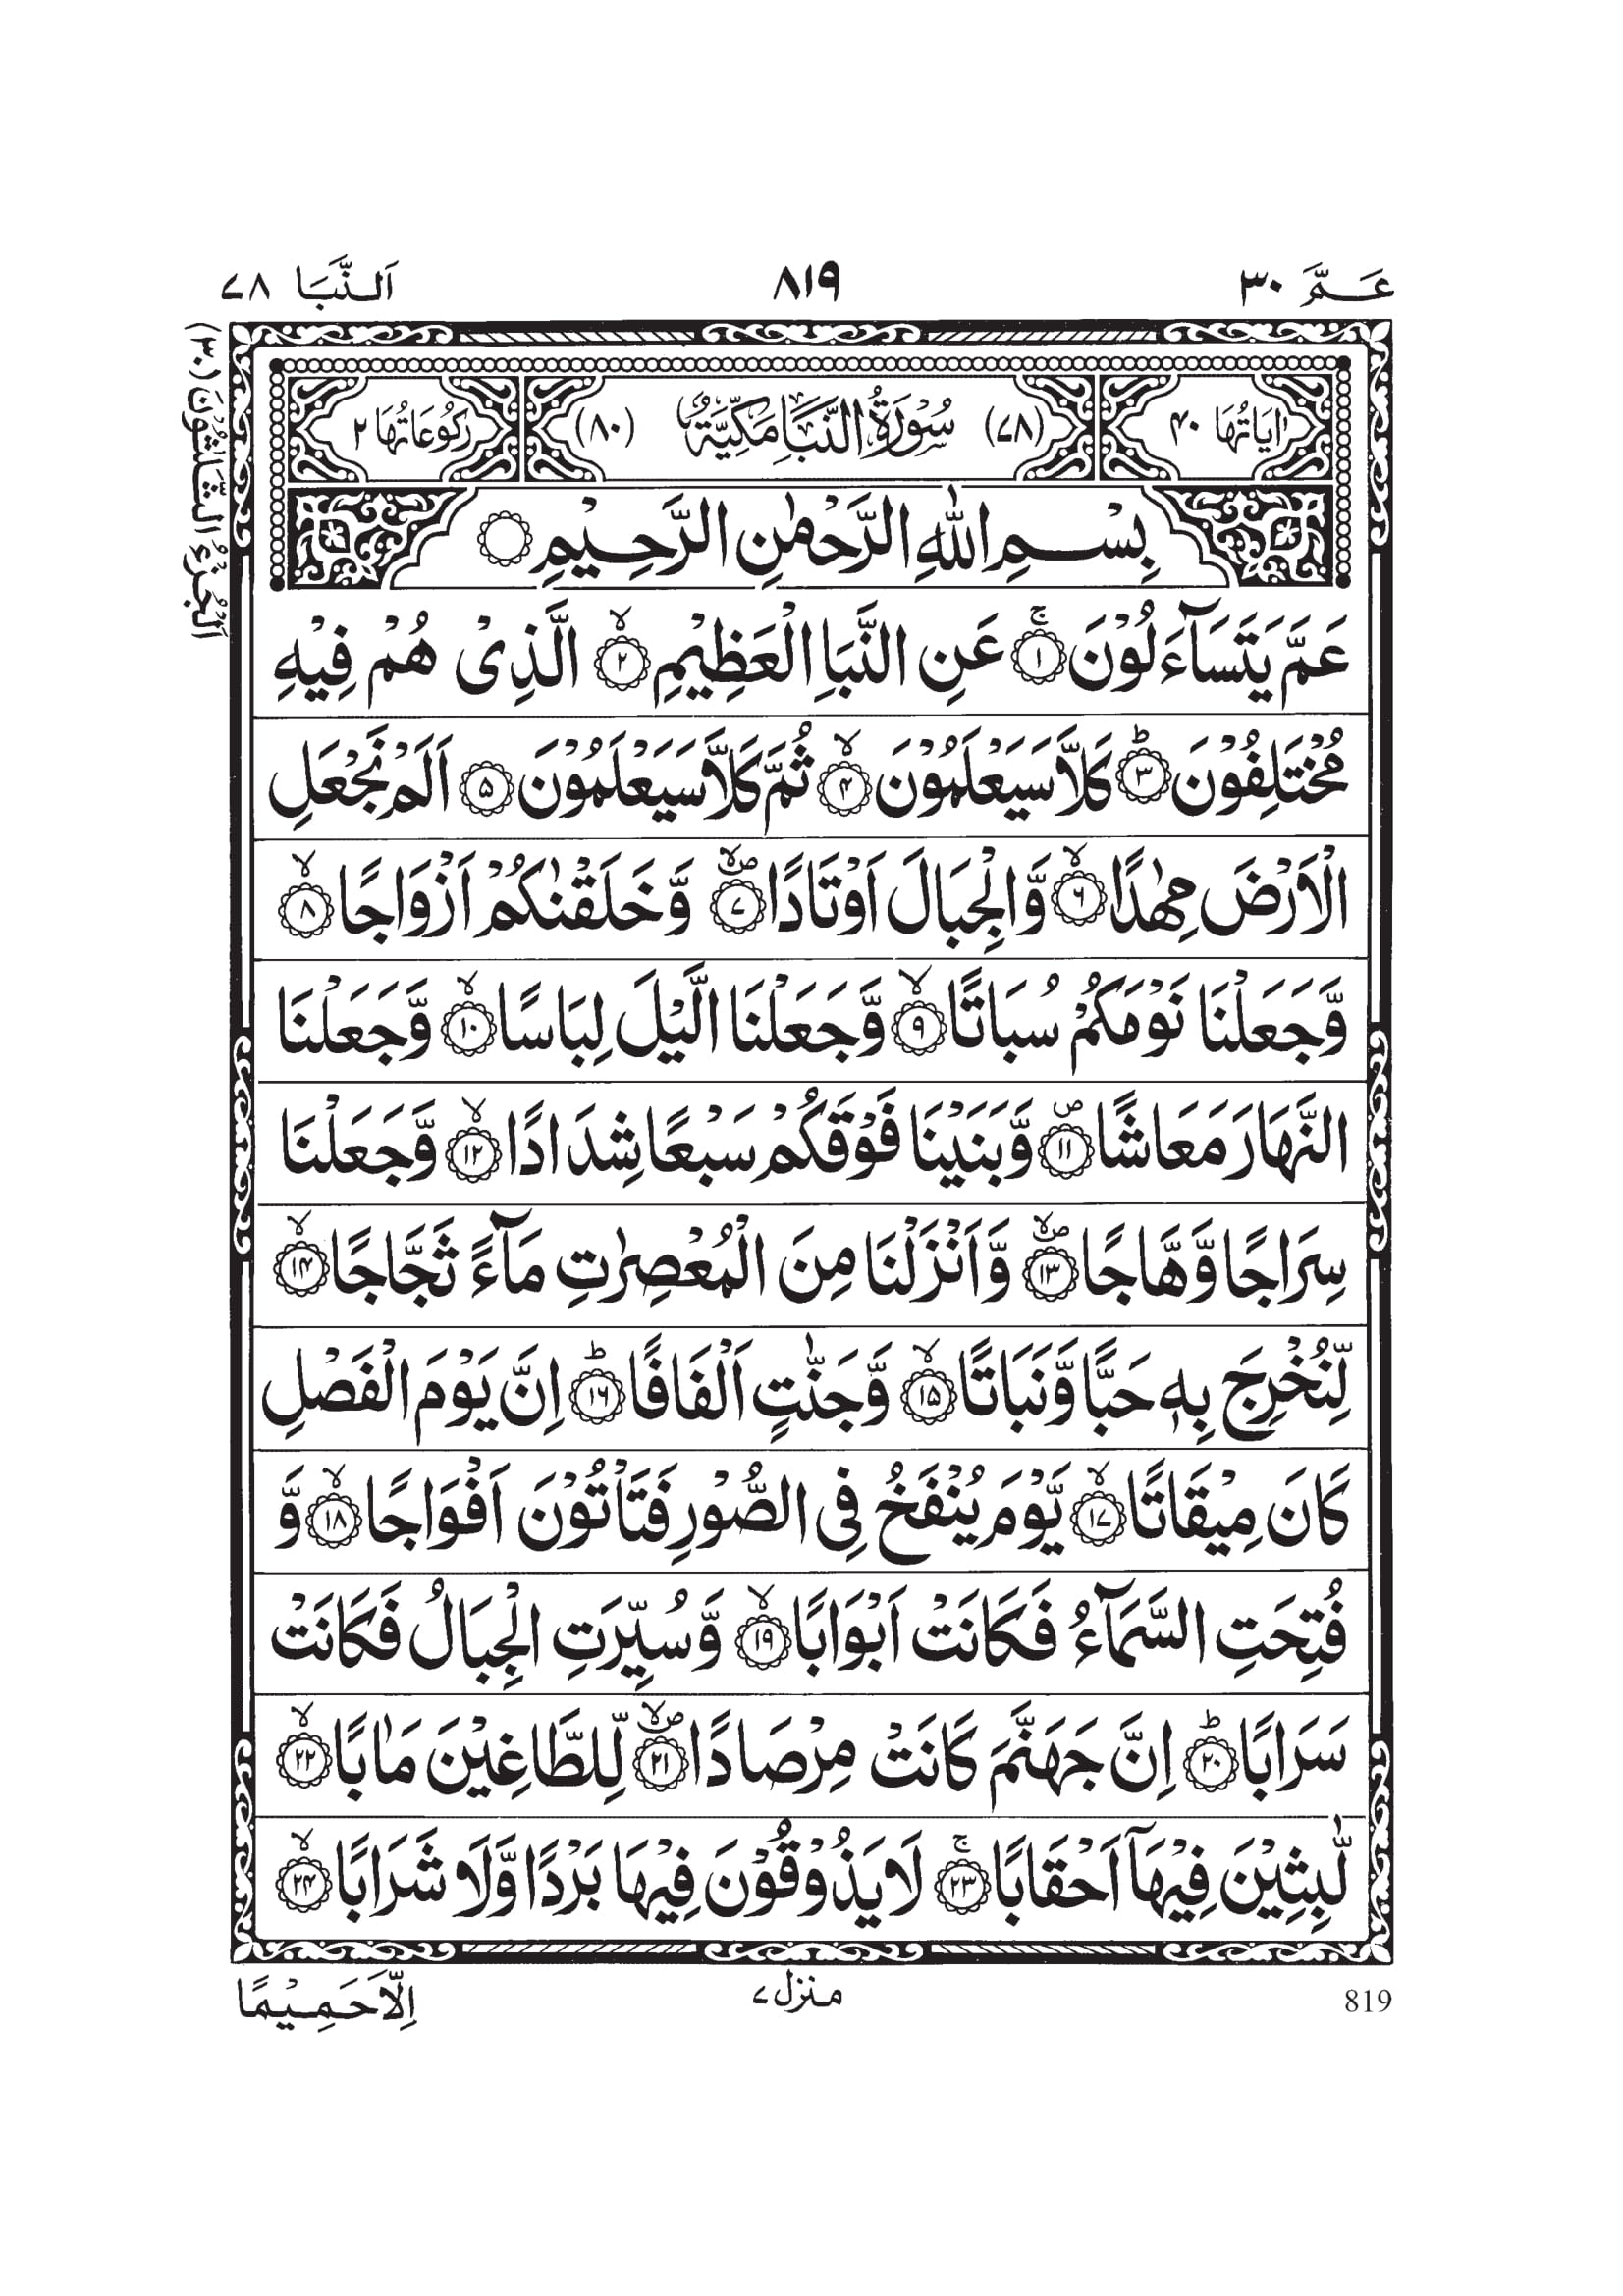 عَمَّ ٣٠
٨١٩
اَلنَّبَا ٧٨
اَلْجُزْءُ الثَّلَاثُوْنَ (٣٠)
اٰيَاتُهَا ٤٠
(٧٨) سُوْرَةُ النَّبَاِ مَكِّيَّةٌ (٨٠)
رُكُوْعَاتُهَا ٢
بِسْمِ اللّٰهِ الرَّحْمٰنِ الرَّحِيْمِ
عَمَّ يَتَسَآءَلُوْنَ ۚ﴿١﴾ عَنِ النَّبَاِ الْعَظِيْمِ ۙ﴿٢﴾ الَّذِىْ هُمْ فِيْهِ
مُخْتَلِفُوْنَ ؕ﴿٣﴾ كَلَّا سَيَعْلَمُوْنَ ۙ﴿٤﴾ ثُمَّ كَلَّا سَيَعْلَمُوْنَ ﴿٥﴾ اَلَمْ نَجْعَلِ
الْاَرْضَ مِهٰدًا ۙ﴿٦﴾ وَّالْجِبَالَ اَوْتَادًا ۪ۙ﴿٧﴾ وَّخَلَقْنٰكُمْ اَزْوَاجًا ۙ﴿٨﴾
وَّجَعَلْنَا نَوْمَكُمْ سُبَاتًا ۙ﴿٩﴾ وَّجَعَلْنَا الَّيْلَ لِبَاسًا ۙ﴿١٠﴾ وَّجَعَلْنَا
النَّهَارَ مَعَاشًا ۪﴿١١﴾ وَّبَنَيْنَا فَوْقَكُمْ سَبْعًا شِدَادًا ۙ﴿١٢﴾ وَّجَعَلْنَا
سِرَاجًا وَّهَّاجًا ۪ۙ﴿١٣﴾ وَّاَنْزَلْنَا مِنَ الْمُعْصِرٰتِ مَآءً ثَجَّاجًا ۙ﴿١٤﴾
لِّنُخْرِجَ بِهٖ حَبًّا وَّنَبَاتًا ۙ﴿١٥﴾ وَّجَنّٰتٍ اَلْفَافًا ؕ﴿١٦﴾ اِنَّ يَوْمَ الْفَصْلِ
كَانَ مِيْقَاتًا ۙ﴿١٧﴾ يَّوْمَ يُنْفَخُ فِى الصُّوْرِ فَتَاْتُوْنَ اَفْوَاجًا ۙ﴿١٨﴾ وَّ
فُتِحَتِ السَّمَآءُ فَكَانَتْ اَبْوَابًا ۙ﴿١٩﴾ وَّسُيِّرَتِ الْجِبَالُ فَكَانَتْ
سَرَابًا ؕ﴿٢٠﴾ اِنَّ جَهَنَّمَ كَانَتْ مِرْصَادًا ۪ۙ﴿٢١﴾ لِّلطَّاغِيْنَ مَاٰبًا ۙ﴿٢٢﴾
لّٰبِثِيْنَ فِيْهَاۤ اَحْقَابًا ۚ﴿٢٣﴾ لَا يَذُوْقُوْنَ فِيْهَا بَرْدًا وَّلَا شَرَابًا ۙ﴿٢٤﴾
اِلَّا حَمِيْمًا
منزل ٧
819